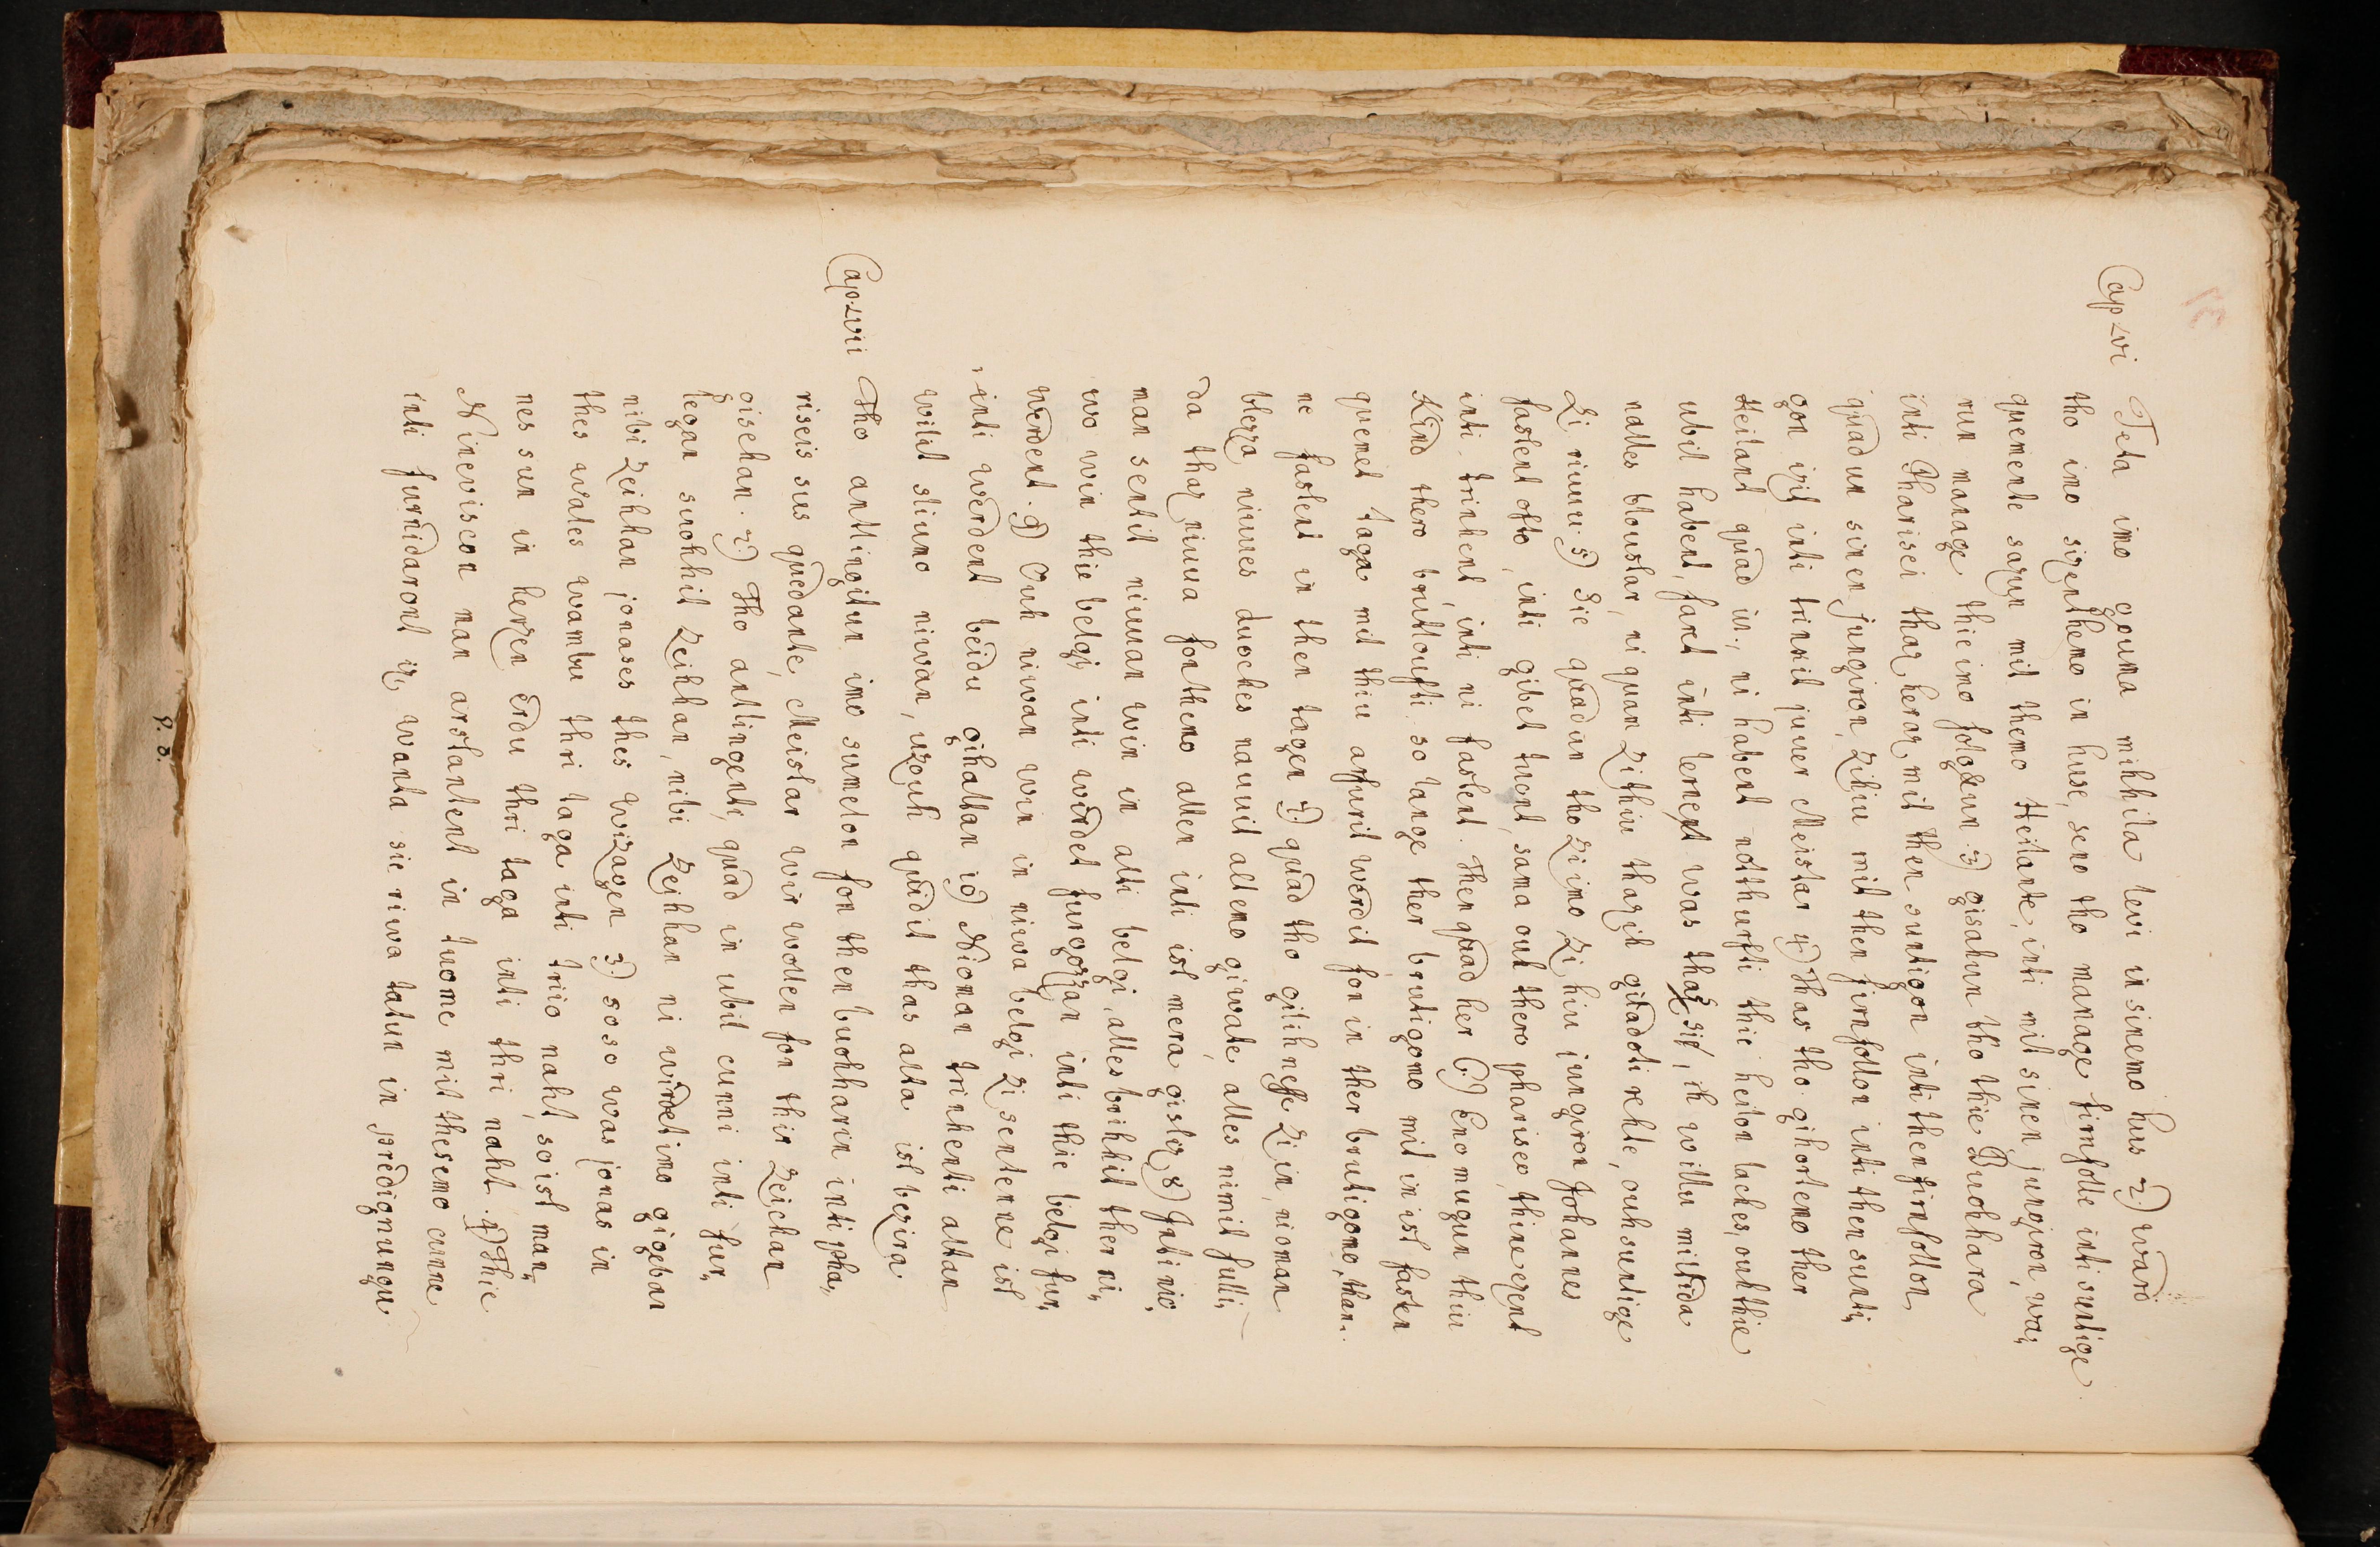 Cap LVI Teta imo gouma mihhila levi in sinemo hus 2) ward
tho imo sizenthemo in huse, seno tho manage firnfolle inti suntige
quemente sazun mit themo Heilante, inti mit sinen jungiron, wa„
run manage thie imo folgetun. 3) gisahun tho thie Buohhara
inti Pharisei thaz her az mit then suntigon inti then firnfollon
quadun sinen jungiron, zihiu mit then firnfollon inti then sunti„
gon izit inti trinkit juuer Meistar 4) Thas tho gihortemo ther
Heilant quad in, ni habent notthurfti thie heilon laches, ouh thie
ubil habent, faret inti lernent was thaz si!, ih willu miltida
nalles bloustar, ni quam zithiu thazih giladoti rehte, ouh suntige
zi riuuu. 5) Sie quadun tho zi imo, zi hiu iungiron Johannes
fastent ofto, inti gibet tuont, sama ouh thero phariseo, thine ezent
inti trinkent inti ni fastent. Then quad her 6) Eno mugun thiu
Kind thero brutloufti so lange ther brutigomo mit in ist fasten
quemet taga mit thiu arfurit wirdit fon in ther brutigomo, than„
ne fastent in then tagen 7.) quad tho gilihnesse zi in, nioman
blezza niuues duoches nauuit altemo giwate, alles nimit fulli„
da thaz niuua fon themo alten inti ist mera gisliz 8) Inti nio„
man sentit niuuan win in alti belgi, alles brihhit ther ni„
wo win thie belgi, inti wirdet furgozzan inti thie belgi fur„
werdent. 9) Ouh niwan win in niwa belgi zi sentenne ist
inti werdent beidu gihaltan 10) Nioman trinkenti altan
wilit sliumo niwan, uzouh quidit thas alta ist bezira
Cap. LVII Tho antlingitun imo sumelon fon then buohharin inti pha„
riseis sus quedante, Meistar wir wollen fon thir zeichan
gisehan. 2.) Tho antlingenti, quad in ubil cunni inti fur„
legan suohhit zeihhan, nibi zeihhan ni wirdet imo gigeban
nibi zeihhan jonases thes wizagen 3.) soso was jonas in
thes wales wambu thri taga inti triio naht, so ist man„
nes sun in herzen erdu thri taga inti thri naht. 4) Thie
Ninevison man arstantent in tuome mit thesemo cunne
inti furnidaront iz, wanta sie riwa tatun in predignungu
P. 8.